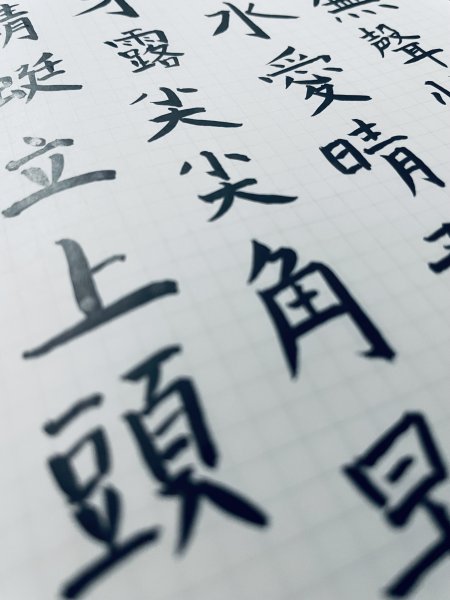 無聲
水愛晴
露尖尖角早
蜻蜓立上頭